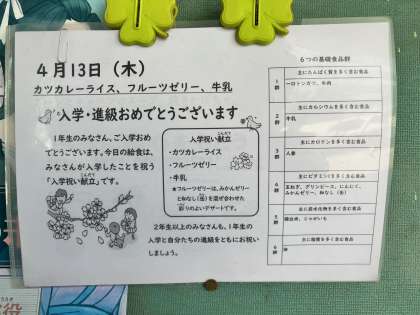 4月13日（木）
カツカレーライス、フルーツゼリー、牛乳
入学・進級おめでとうございます
1年生のみなさん、ご入学おめ
でとうございます。今日の給食は、
みなさんが入学したことを祝う
「入学祝い献立」です。
入学祝い献立
・カツカレーライス
・フルーツゼリー
・牛乳
★フルーツゼリーは、みかんゼリー
となし（缶）を混ぜ合わせた
彩りのよいデザートです。
2年生以上のみなさんも、1年生の
入学と自分たちの進級をともにお祝い
しましょう。
6つの基礎食品群
1群
主にたんぱく質を多く含む食品
一口トンカツ、牛肉
2群
主にカルシウムを多く含む食品
牛乳
3群
主にカロテンを多く含む食品
人参
4群
主にビタミンCを多く含む食品
玉ねぎ、グリンピース、にんにく、
みかんゼリー、なし（缶）
5群
主に炭水化物を多く含む食品
精白米、じゃがいも
6群
主に脂質を多く含む食品